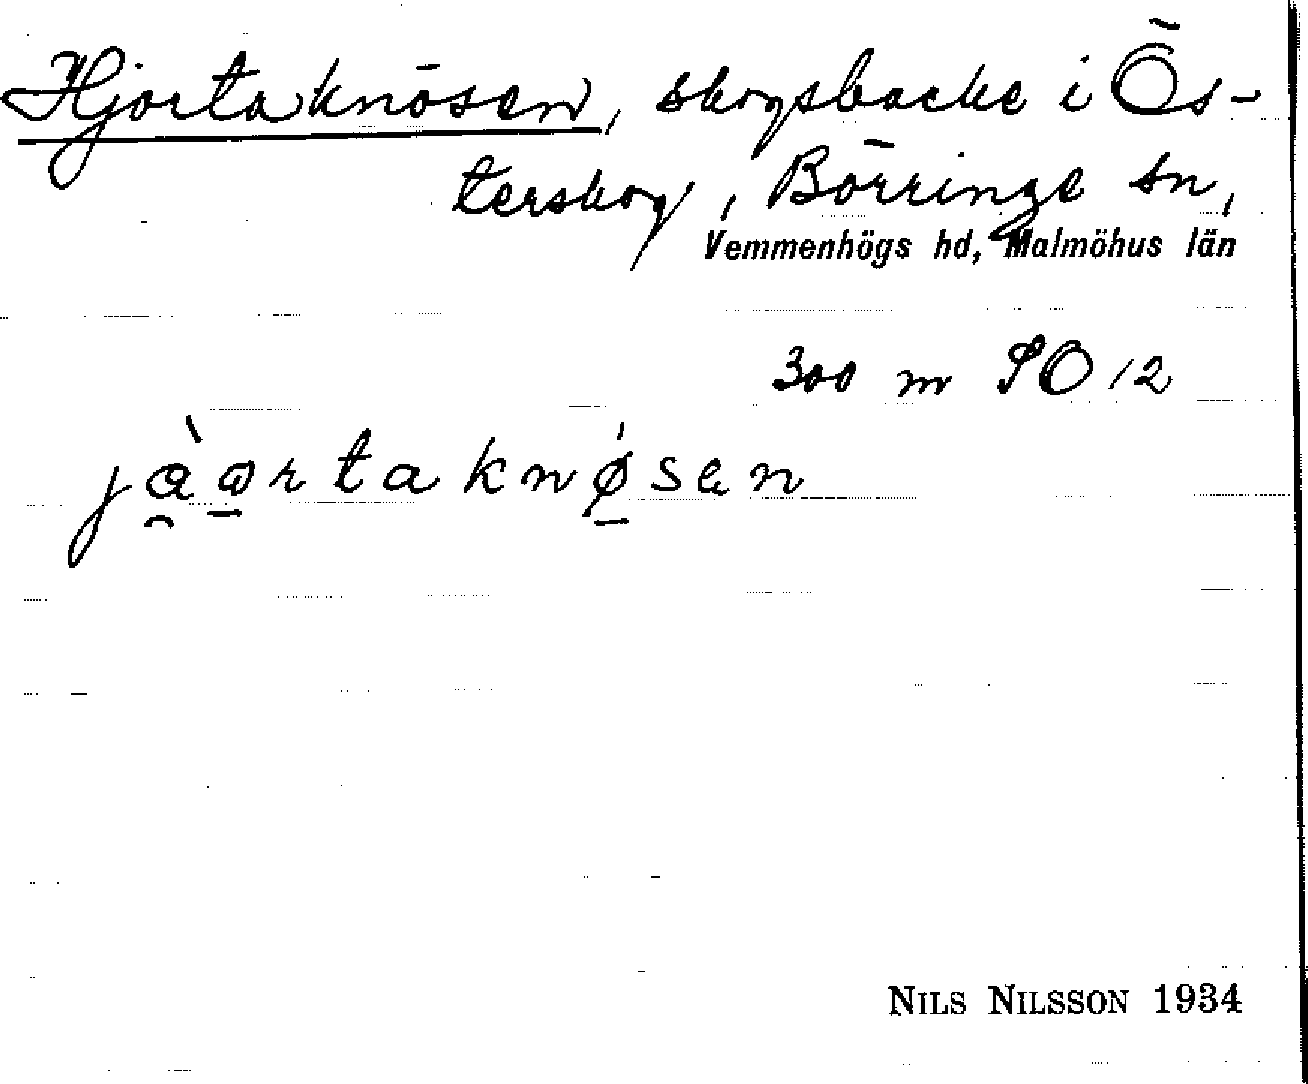 Hjortaknösen, skogsbacke i Ös-
terskog, Börringe sn,
Vemmenhögs hd, Malmöhus län
300 m SO 12
jàortaknøsen
NILS NILSSON 1934